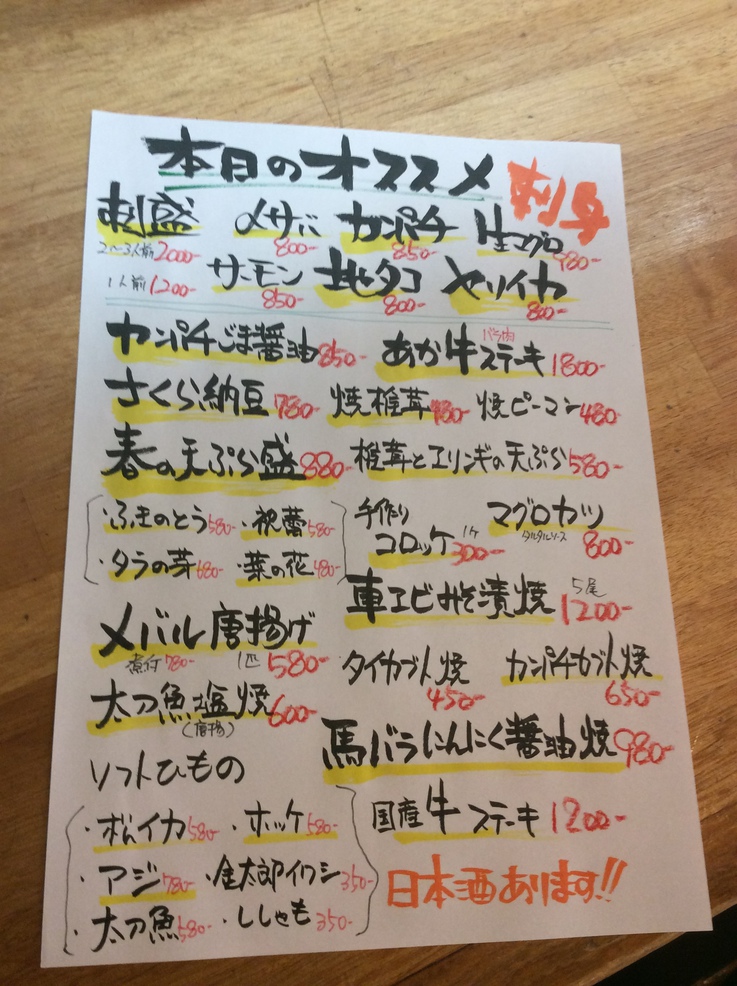 本日のオススメ 刺身
刺盛 〆サバ カンパチ 生マグロ
2〜3人前 2000- 800- 850- 980-
1人前 1200- サーモン 地タコ ヤリイカ
850- 800- 800-
カンパチごま醤油 850- あか牛ステーキ バラ肉 1800-
さくら納豆 780- 焼椎茸 480- 焼ピーマン 480-
春の天ぷら盛 880- 椎茸とエリンギの天ぷら 580-
・ふきのとう 580- ・祝蕾 580-
・タラの芽 680- ・菜の花 480-
手作り コロッケ 1ケ 300- マグロカツ タルタルソース 800-
車エビみそ漬焼 5尾 1200-
メバル唐揚げ 1匹 580-
煮付 780-
タイカブト焼 450- カンパチカブト焼 650-
太刀魚塩焼 600-
(唐揚)
馬バラにんにく醤油焼 980-
ソフトひもの
国産牛ステーキ 1200-
・ホッケ 580-
・アジ 780- ・金太郎イワシ 350-
・太刀魚 580- ・ししゃも 350-
日本酒あります!!